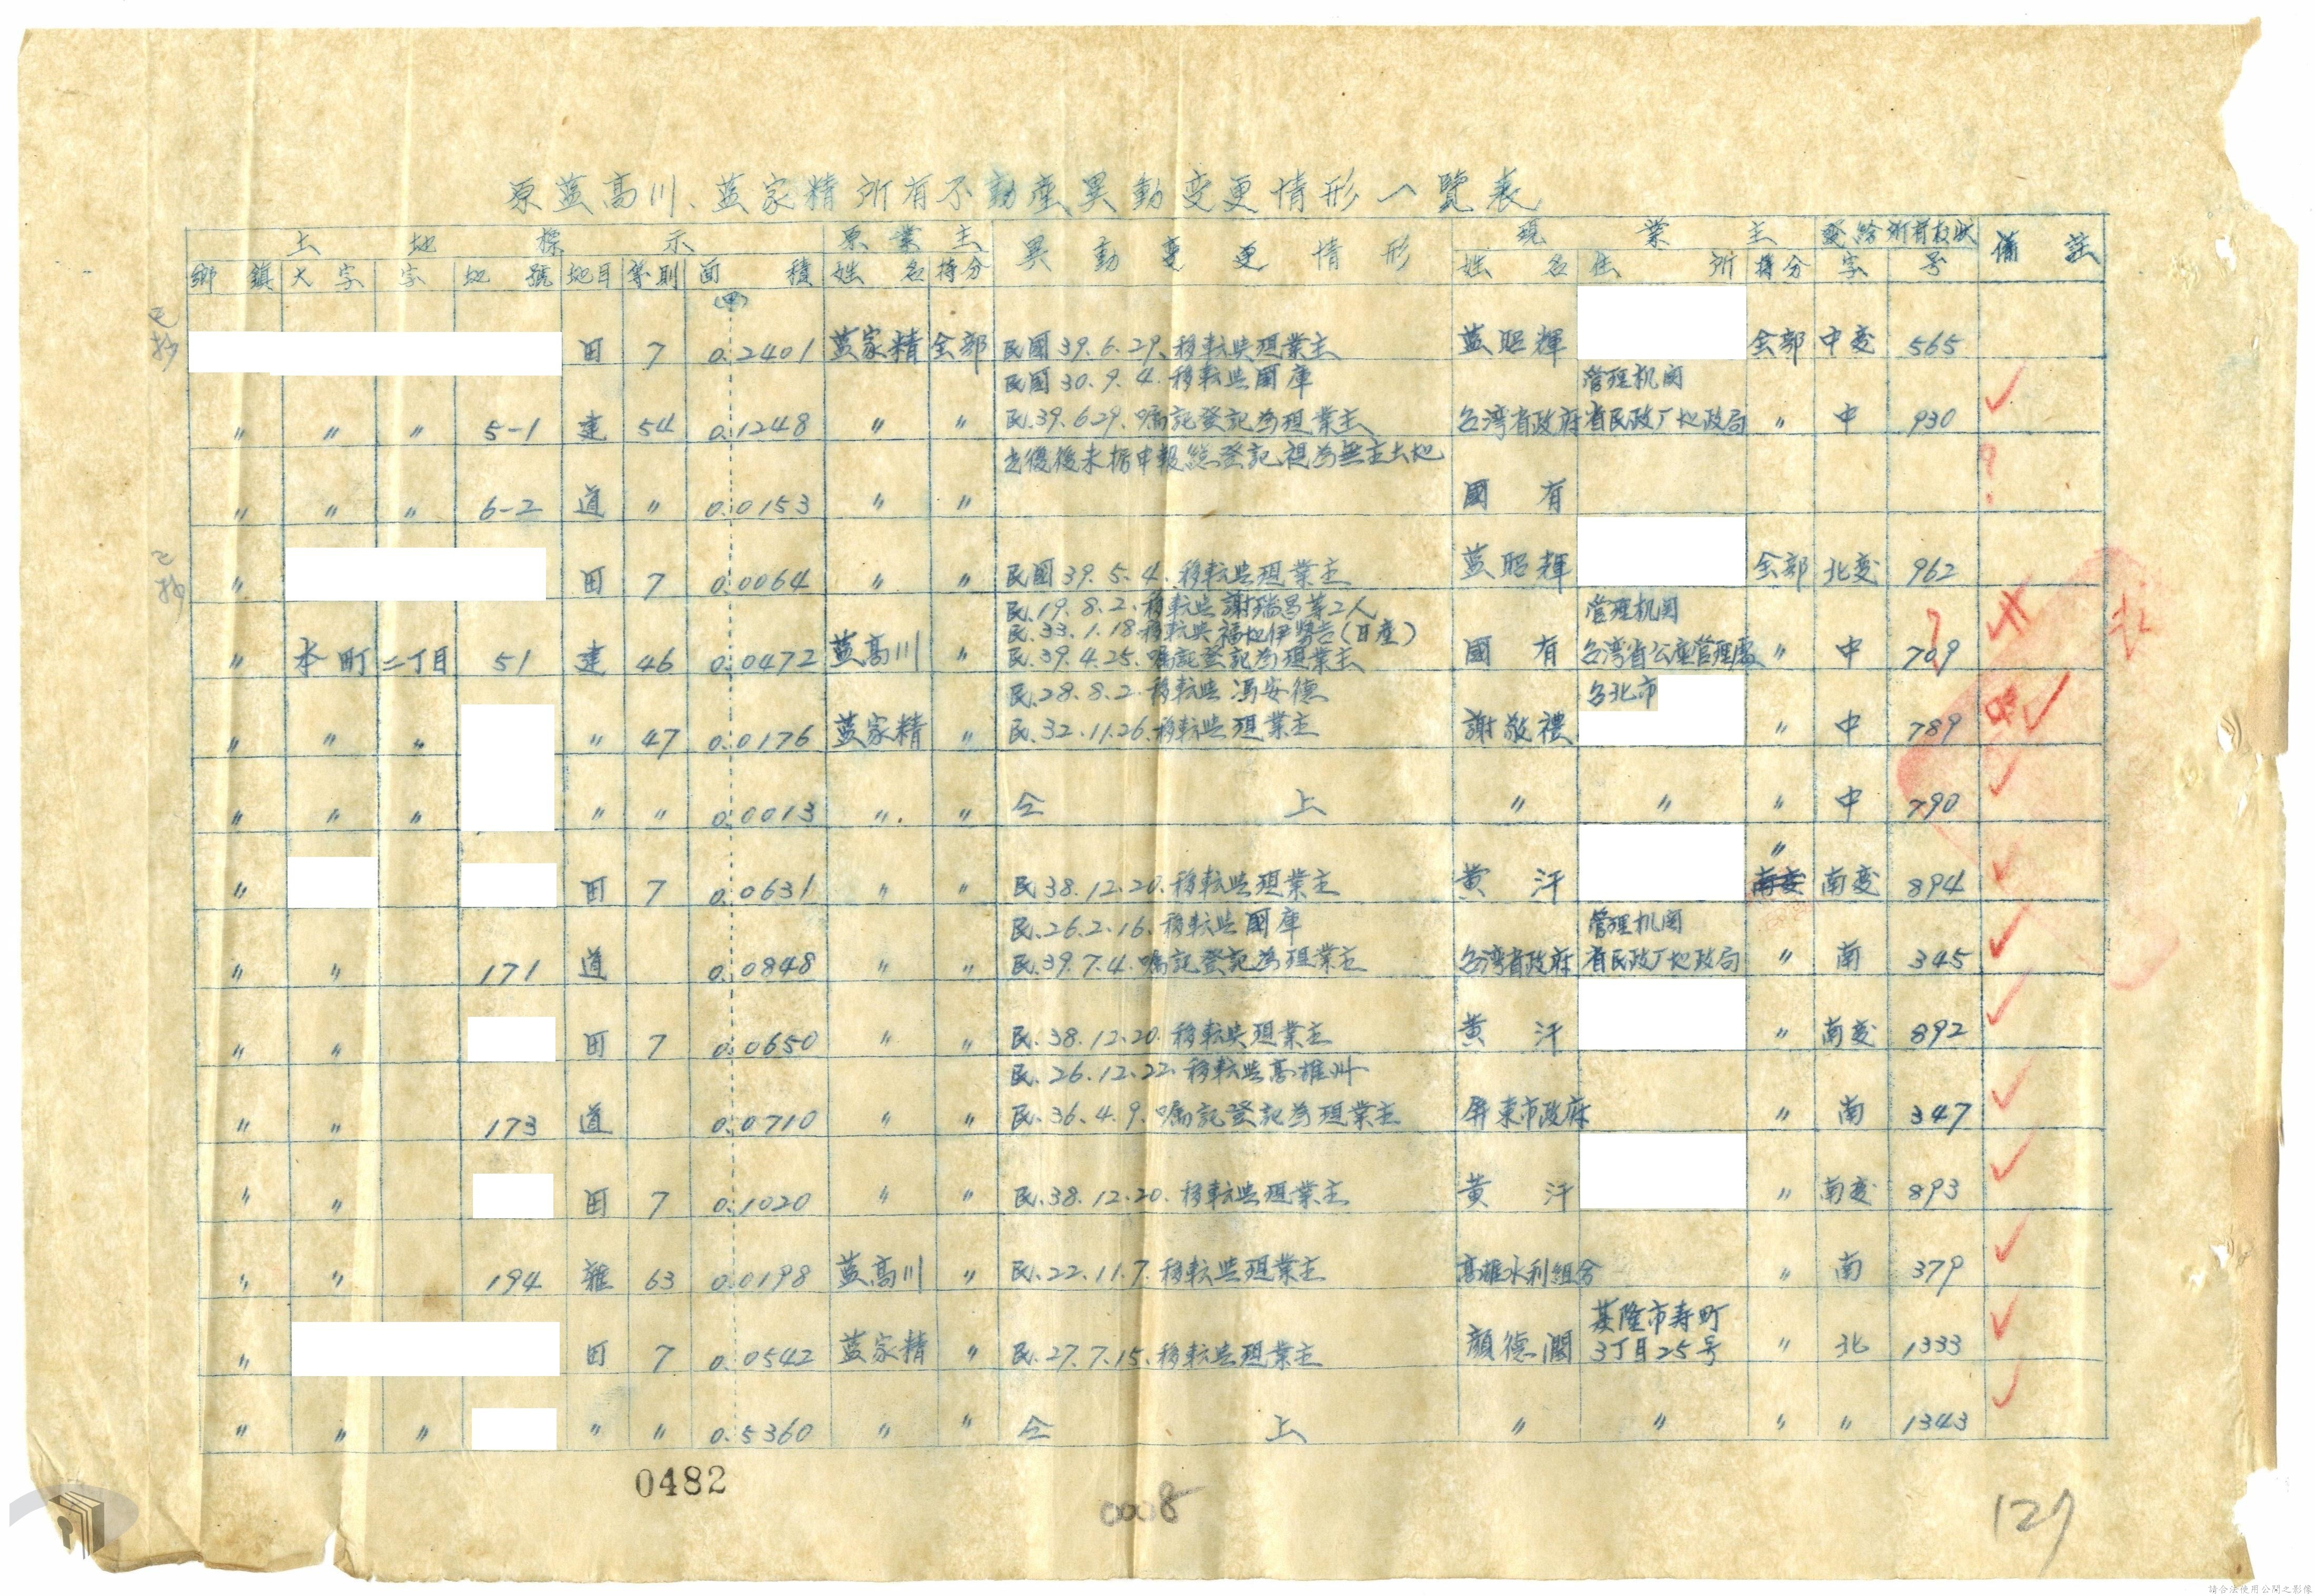 原藍高川、藍家精所有不動產異動変更情形一覽表
土地標示 原業主 異動変更情形 現業主 發給所有权狀 備註
鄉鎮 大字 字 地號 地目 等則 面積 姓名 持分 姓名 住所 持分 字 号
(甲)
已抄 田 7 0.2401 藍家精 全部 民國39.6.29.移転与現業主 藍昭輝 全部 中変 565
民國30.9.4.移転与國庫 管理机関
〃 〃 〃 5-1 建 54 0.1248 〃 〃 民.39.6.29.嘱託登記為現業主 台湾省政府 省民政厂地政局 〃 中 930
光復後未拠申報總登記視為無主土地
〃 〃 〃 6-2 道 〃 0.0153 〃 〃 國有 ?
已抄 〃 田 7 0.0064 〃 〃 民國39.5.4.移転与現業主 藍昭輝 全部 北変 962
民.19.8.2.移転与謝瑞昌等2人 管理机関
民.33.1.18.移転与福地伊勢吉(日產)
〃 本町 二丁目 51 建 46 0.0472 藍高川 〃 民.39.4.25.嘱託登記為現業主 國有 台湾省公產管理處 〃 中 709
民.28.8.2.移転与馮安德 台北市
〃 〃 〃 〃 47 0.0176 藍家精 〃 民.32.11.26.移転与現業主 謝敬禮 〃 中 789
〃 〃 〃 〃 〃 0.0013 〃 〃 仝上 〃 〃 〃 中 790
〃
〃 田 7 0.0631 〃 〃 民38.12.20.移転与現業主 黄汗 南変 南変 894
民.26.2.16.移転与國庫 管理机関
〃 〃 171 道 0.0848 〃 〃 民.39.7.4.嘱託登記為現業主 台湾省政府 省民政厂地政局 〃 南 345
〃 〃 田 7 0.0650 〃 〃 民.38.12.20.移転与現業主 黄汗 〃 南変 892
民.26.12.22.移転与高雄州
〃 〃 173 道 0.0710 〃 〃 民.36.4.9.嘱託登記為現業主 屏東市政府 〃 南 347
〃 〃 田 7 0.1020 〃 〃 民.38.12.20.移転与現業主 黄汗 〃 南変 893
〃 〃 194 雜 63 0.0198 藍高川 〃 民.22.11.7.移転与現業主 高雄水利組合 〃 南 379
基隆市寿町
〃 田 7 0.0542 藍家精 〃 民.27.7.15.移転与現業主 顏德潤 3丁目25号 〃 北 1333
〃 〃 〃 〃 〃 0.5360 〃 〃 仝上 〃 〃 〃 〃 1343
0482
0008
127
請合法使用公開之影像